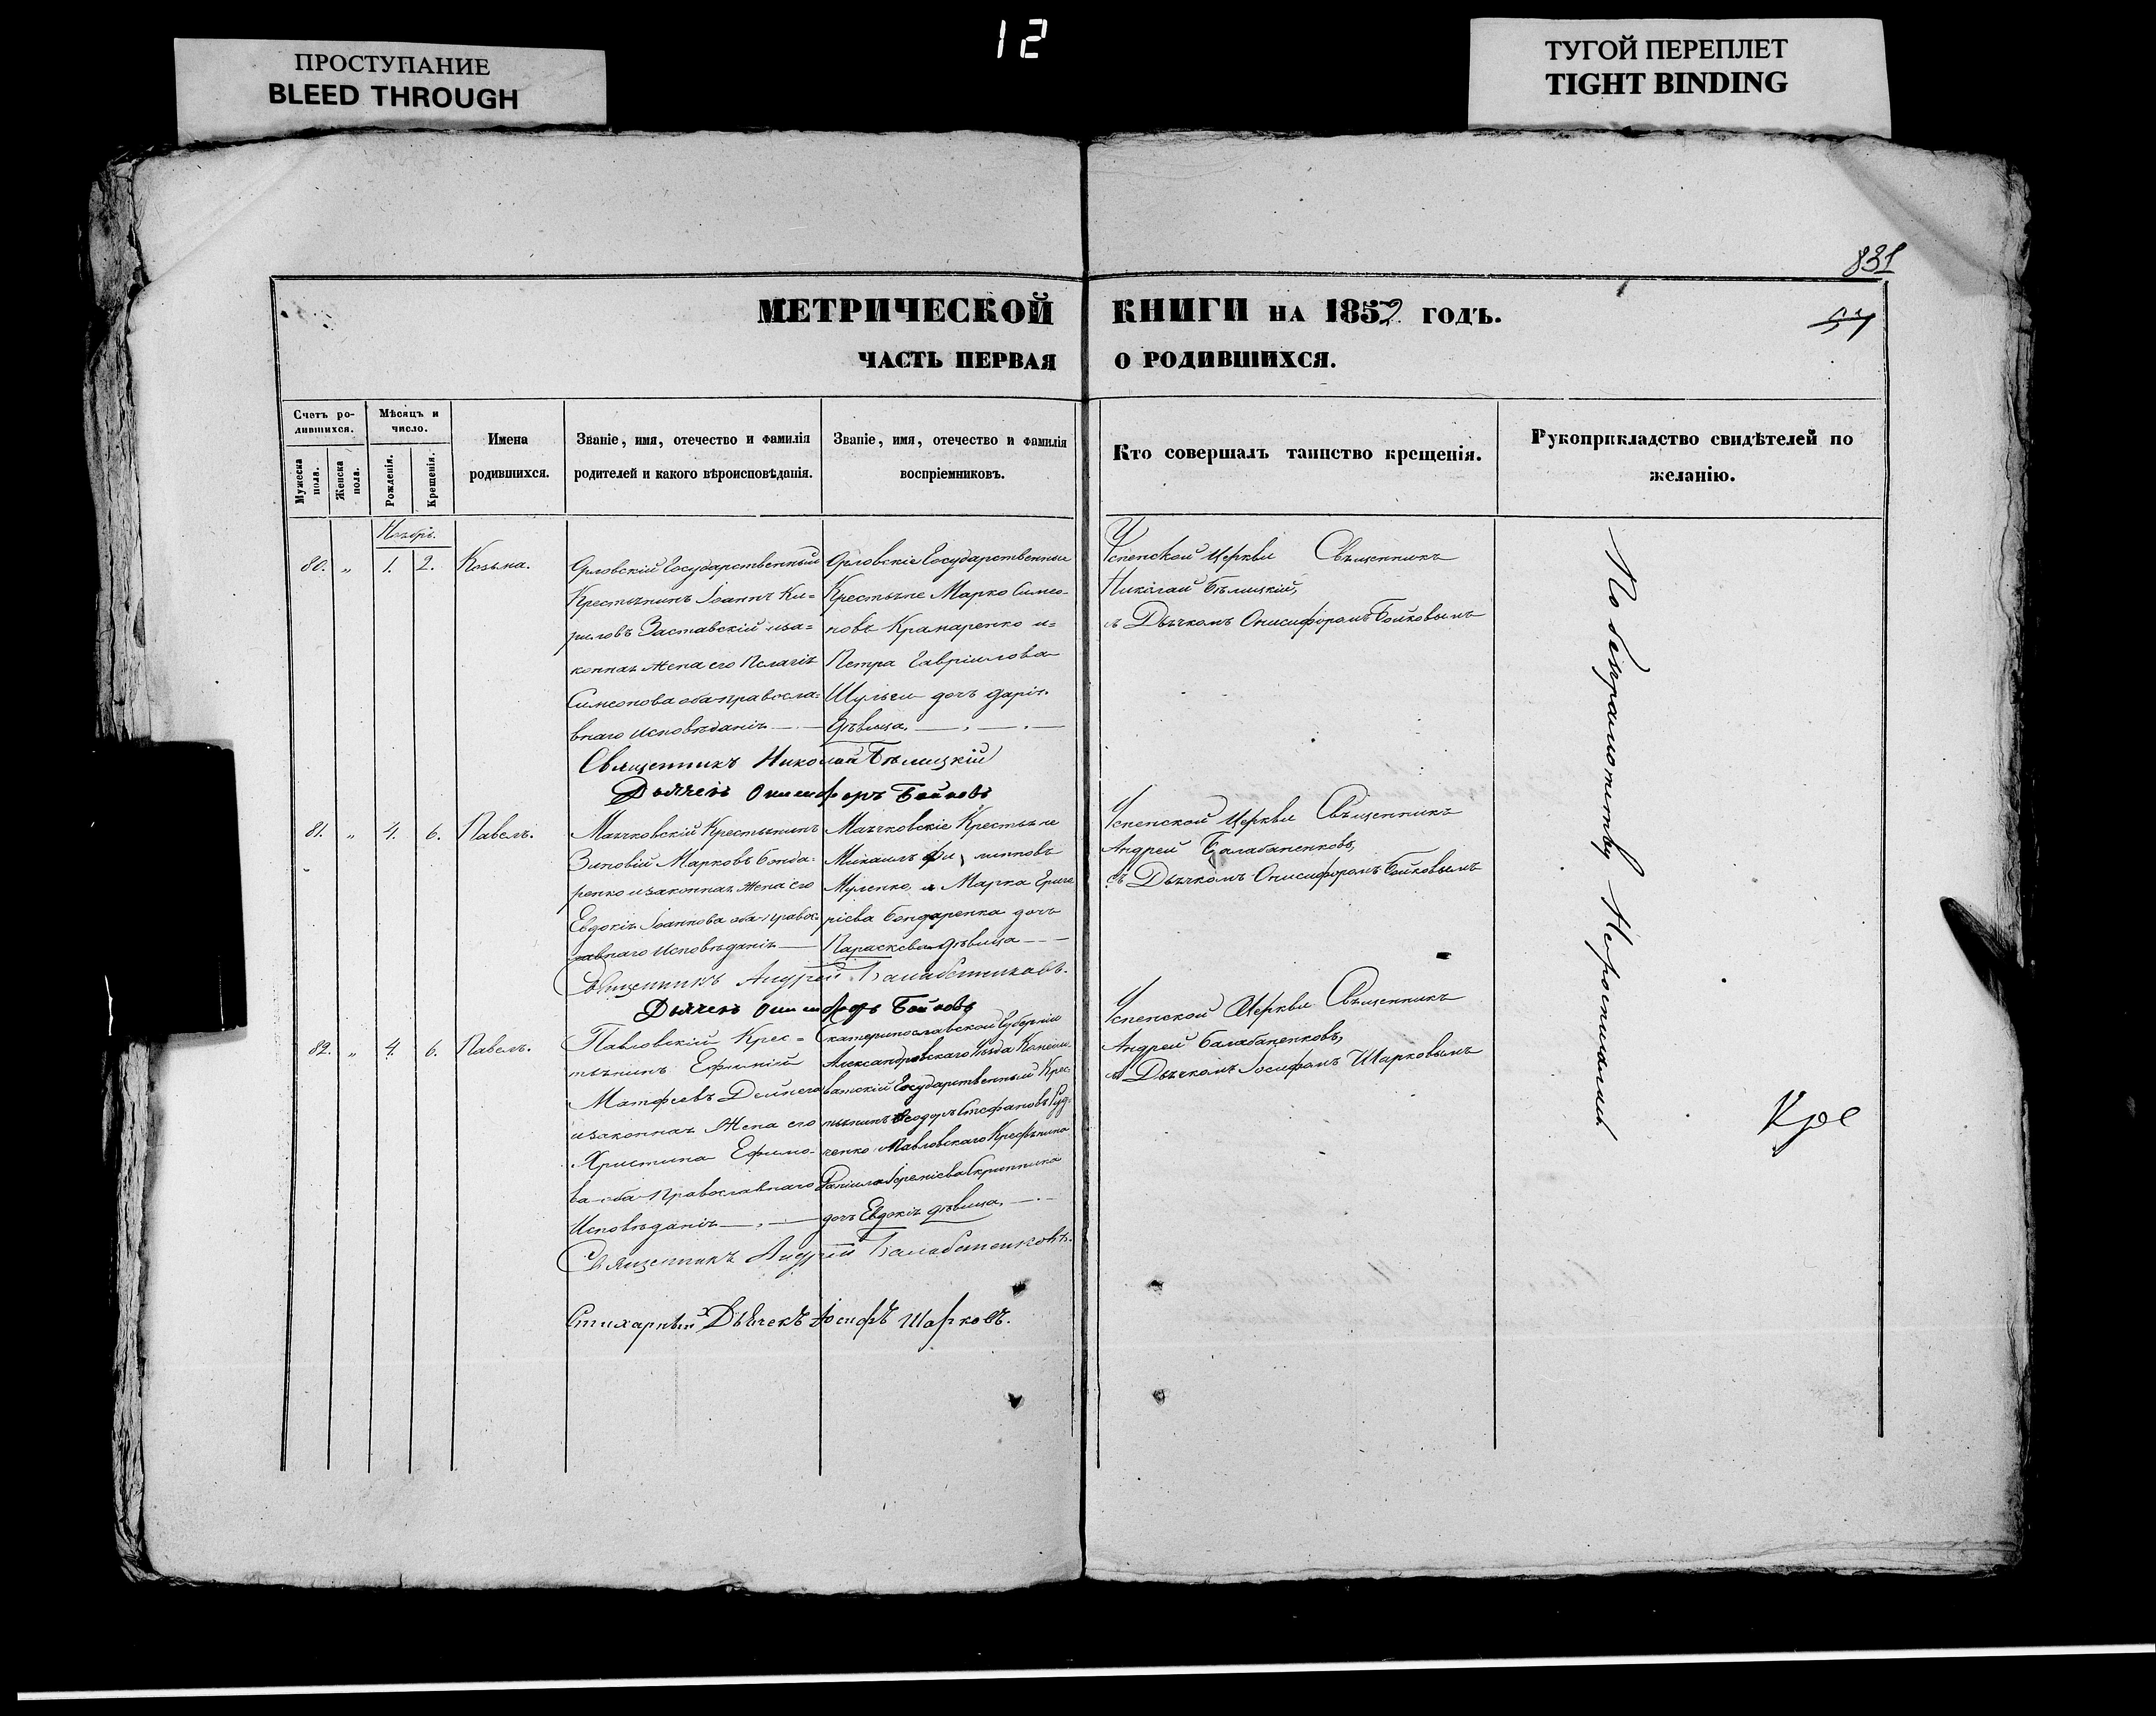 ПРОСТУПАНИЕ
BLEED THROUGH
12
ТУГОЙ ПЕРЕПЛЕТ
TIGHT BINDING
831
МЕТРИЧЕСКОЙ КНИГИ НА 1852 ГОДЪ.
57
ЧАСТЬ ПЕРВАЯ О РОДИВШИХСЯ.
Счетъ ро-
дившихся.
Мужеска пола.
Женска пола.
Мѣсяцъ и
число.
Рожденія.
Крещенія.
Имена
родившихся.
Званіе, имя, отечество и фамилія
родителей и какого вѣроисповѣданія.
Званіе, имя, отечество и фамилія
воспріемниковъ.
Кто совершалъ таинство крещенія.
Рукоприкладство свидѣтелей по
желанію.
Ноябрь.
80. „ 1. 2. Козьма.
Орловскій Государственный
Крестьянинъ Іоаннъ Ки=
риловъ Заставскій иза=
конная жена его Пелагія
Симеонова оба правосла=
внаго исповѣданія
Орловскіе Государственные
Крестьяне Марко Симео-
новъ Крамаренко и=
Петра Гавріилова
Шульги дочь Дарія.
дѣвица.
Успенской Церкви Священникъ
Николай Бѣлицкій,
съ Дьячкомъ Онисифоромъ Бойковымъ
Священникъ Николай Бѣлицкій
Дьячекъ Онисифоръ Бойковъ
81. „ 4. 6. Павелъ.
Маячковскій Крестьянинъ
Зиновій Марковъ Бонда-
ренко изаконная жена его
Евдокія Іоаннова оба правос-
лавнаго исповѣданія
Маячковскіе Крестьяне
Михаилъ Филипповъ
Муленко, и Марка Григо
ріева Бондаренка дочь
Параскева дѣвица
Успенской Церкви Священникъ
Андрей Балабаненковъ,
съ Дьячкомъ Онисифоромъ Бойковымъ
Священникъ Андрей Балабаненковъ.
Дьячекъ Онисифоръ Бойковъ
82. „ 4. 6. Павелъ.
Павловскій Крес=
тьянинъ Ефимій
Матфеевъ Дейнега
изаконная Жена его
Христина Ефимо-
ва оба Православнаго
Исповѣданія
Екатеринославской Губерніи
Александровскаго Уѣзда
Государственный Крес-
тьянинъ Ѳеодоръ Стефановъ
ченко Павловскаго
Даніила Скрипника
дочь Евдокія дѣвица.
Успенской Церкви Священникъ
Андрей Балабаненковъ,
съ Дьячкомъ Іосифомъ Шарковымъ
Священникъ Андрей Балабаненковъ.
Стихарный Дьячекъ Іосифъ Шарковъ.
По безграмотству Неросписались